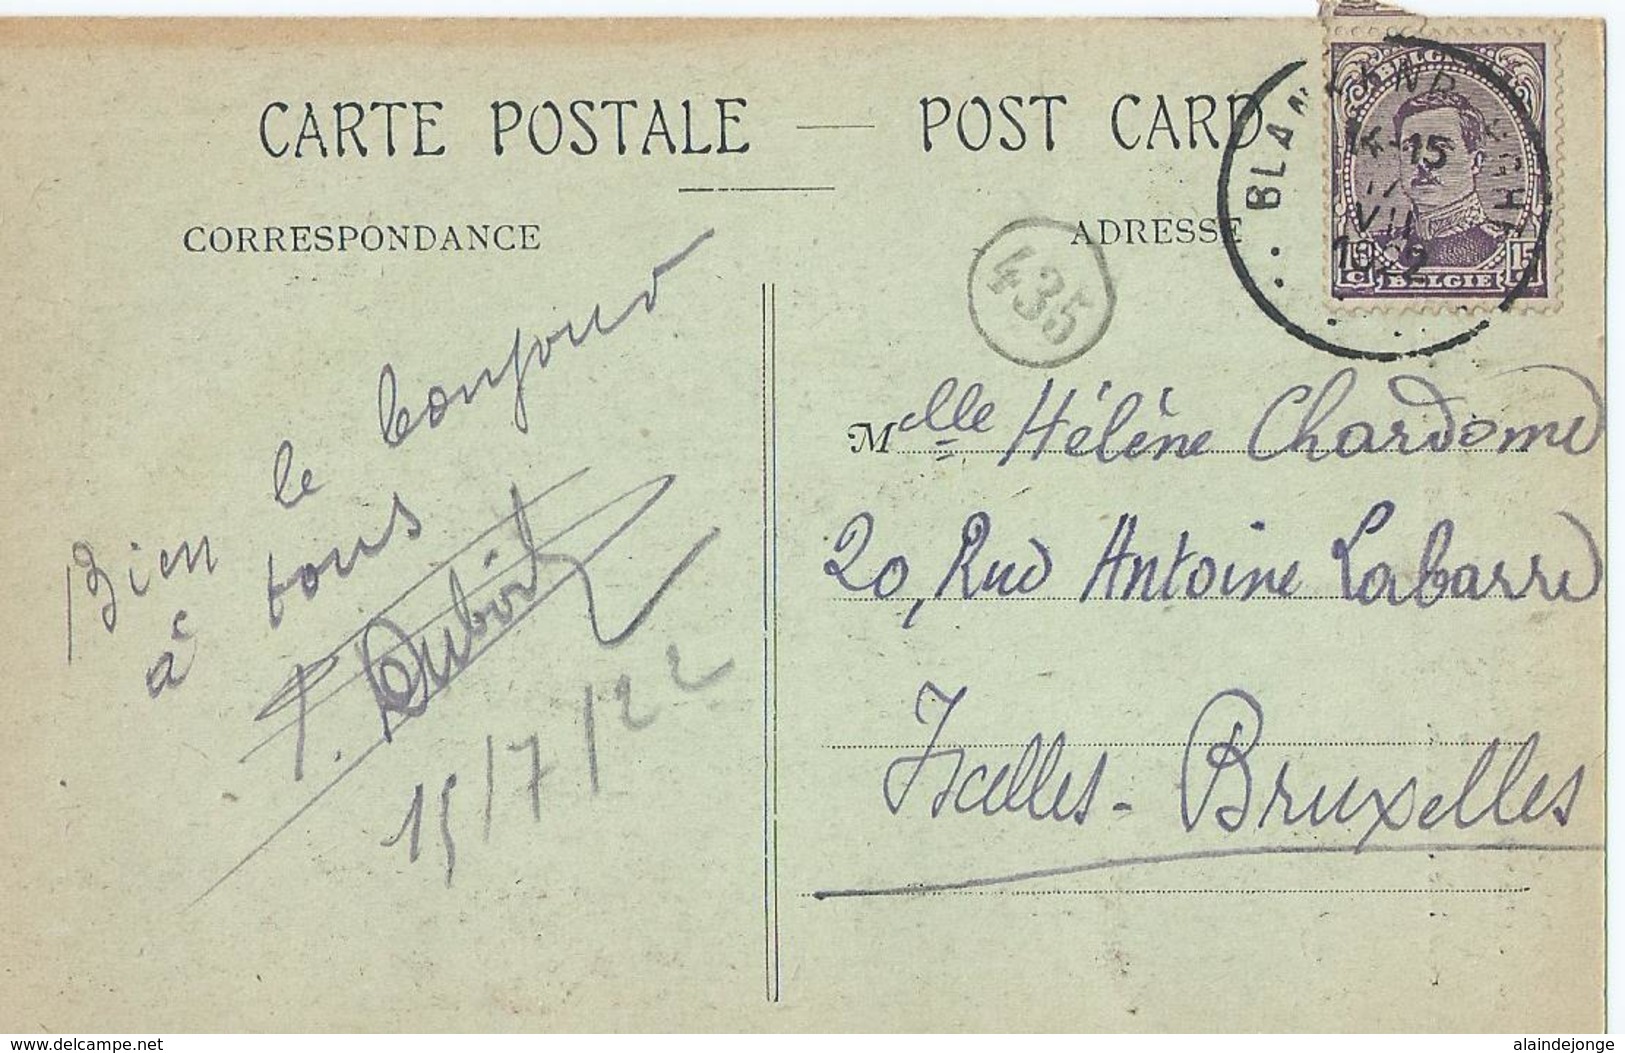 CARTE POSTALE — POST CARD
CORRESPONDANCE
ADRESSE
BLANKENBERGHE
15
VII
1922
BELGIE
15 C
15 C
435
Bien le bonjour
à tous
15/7/22
Melle Hélène Chardome
20, Rue Antoine Labarre
Ixelles - Bruxelles
www.delcampe.net
alaindejonge